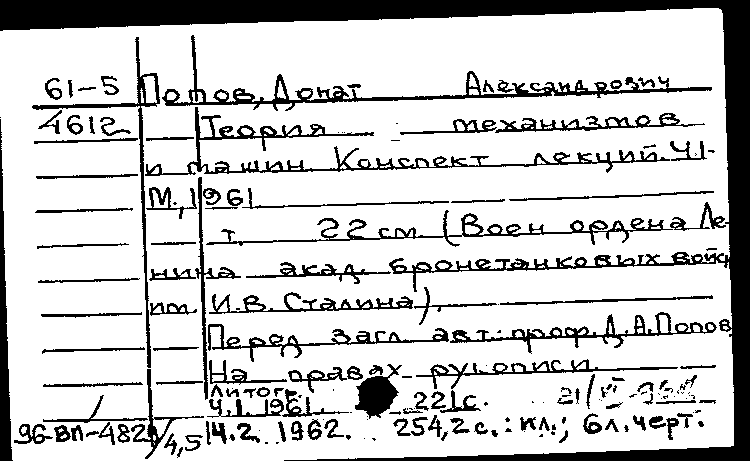 61-5 Попов, Донат Александрович
4612 Теория механизмов
и машин. Конспект лекций. Ч.1-
М., 1961
т. 22 см. (Воен ордена Ле-
нина акад. бронетанковых войск
им. И.В. Сталина).
Перед загл. авт.: проф. Д.А. Попов
На правах рукописи.
Литогр.
Ч.1. 1961. 221 с. 21/VI-
96-ВП-482 /4,5 Ч.2. 1962. 254,2 с.: ил.; 6 л. черт.